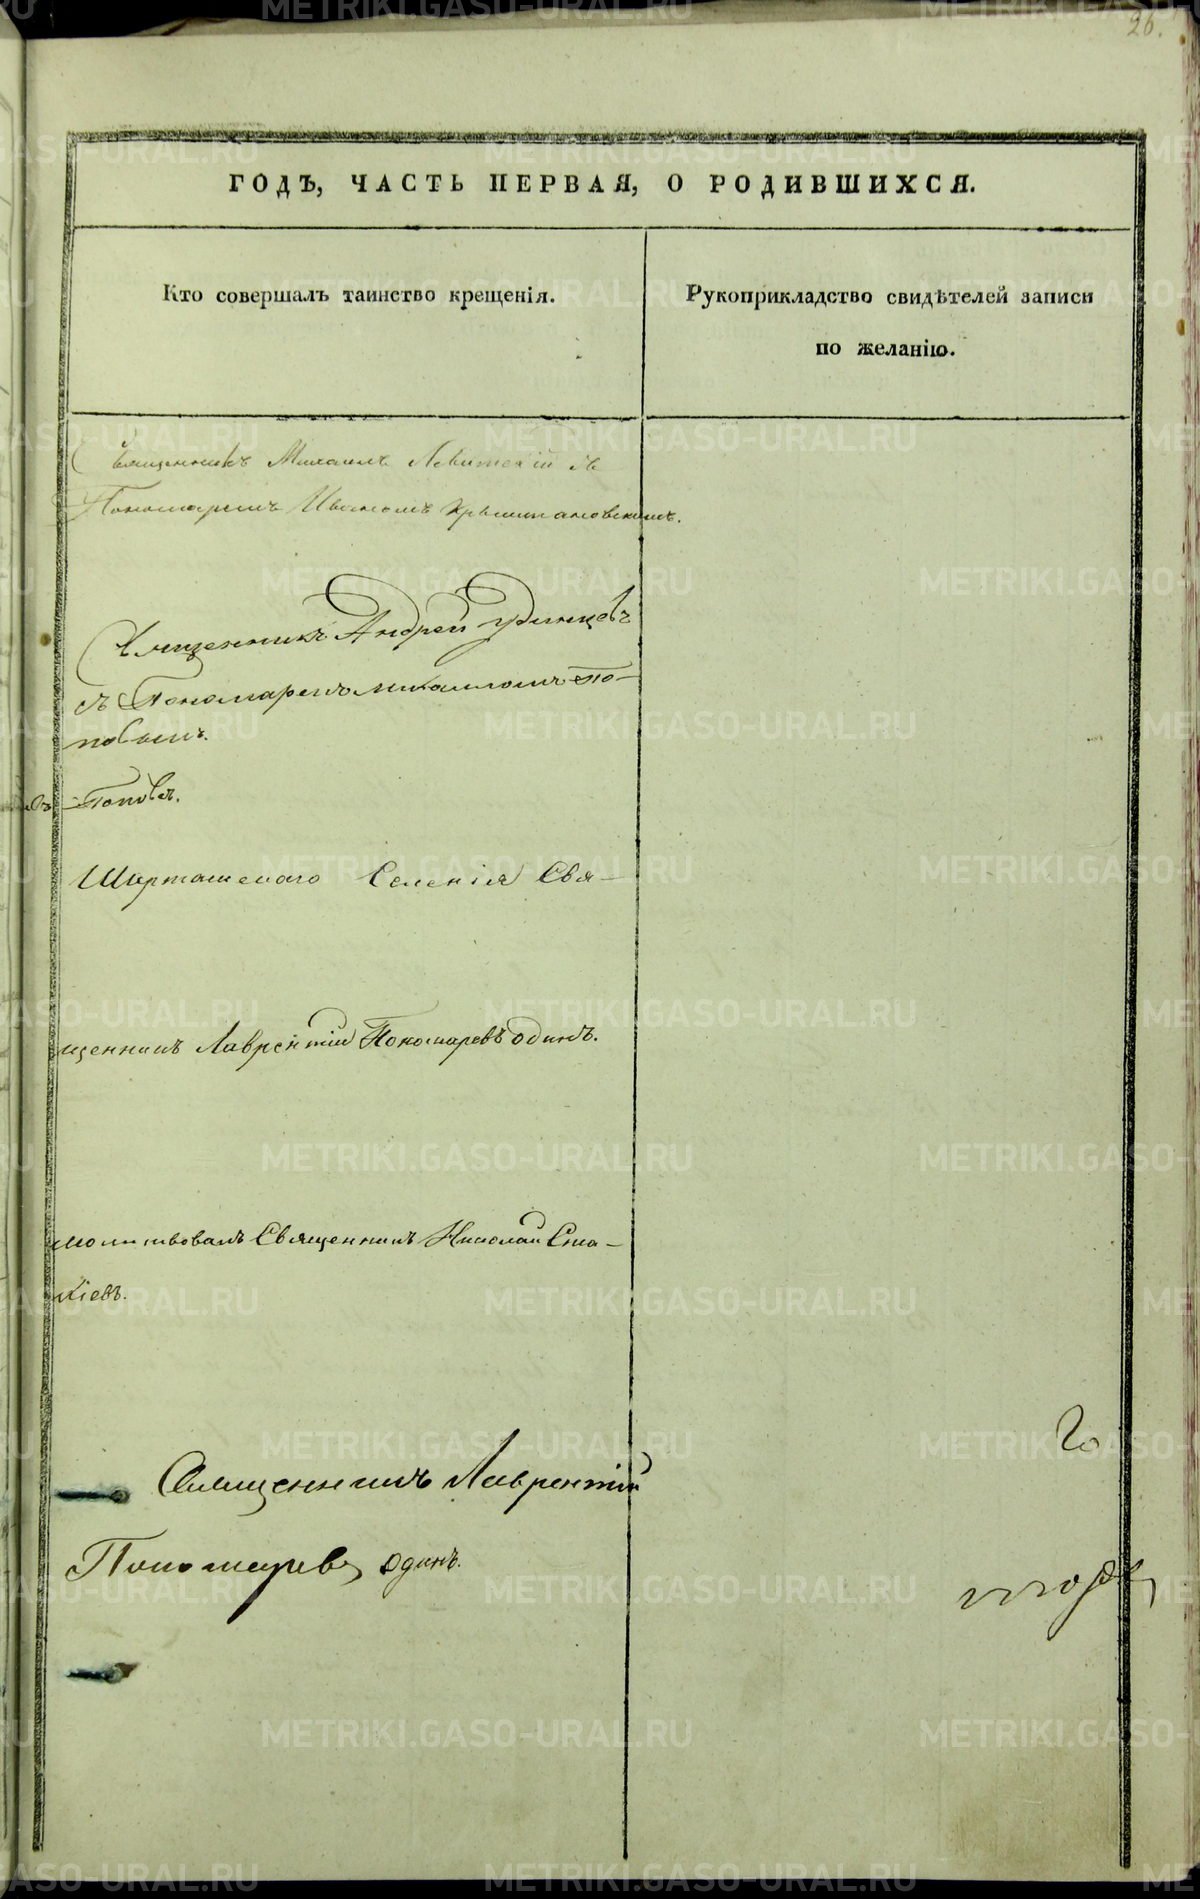 26.
ГОДЪ, ЧАСТЬ ПЕРВАЯ, О РОДИВШИХСЯ.
Кто совершалъ таинство крещенія.
Рукоприкладство свидѣтелей записи
по желанію.
Священникъ Михаилъ Левитскій съ
Пономаремъ Иваномъ
Священникъ Андрей Удинцевъ
съ Пономаремъ Михаиломъ По-
повымъ.
Поповъ.
Шарташскаго Селенія Свя-
щенникъ Лаврентій Пономаревъ одинъ.
молитвовалъ Священникъ Николай Ста-
хіевъ.
Священникъ Лаврентій
Пономаревъ одинъ.
METRIKI.GASO-URAL.RU